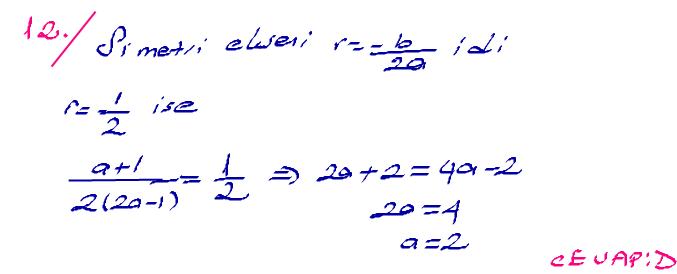 12./ Simetri ekseni r = -b/2a idi
r = 1/2 ise
a+1/2(2a-1) = 1/2 ⇒ 2a+2 = 4a-2
2a = 4
a = 2
CEVAP: D